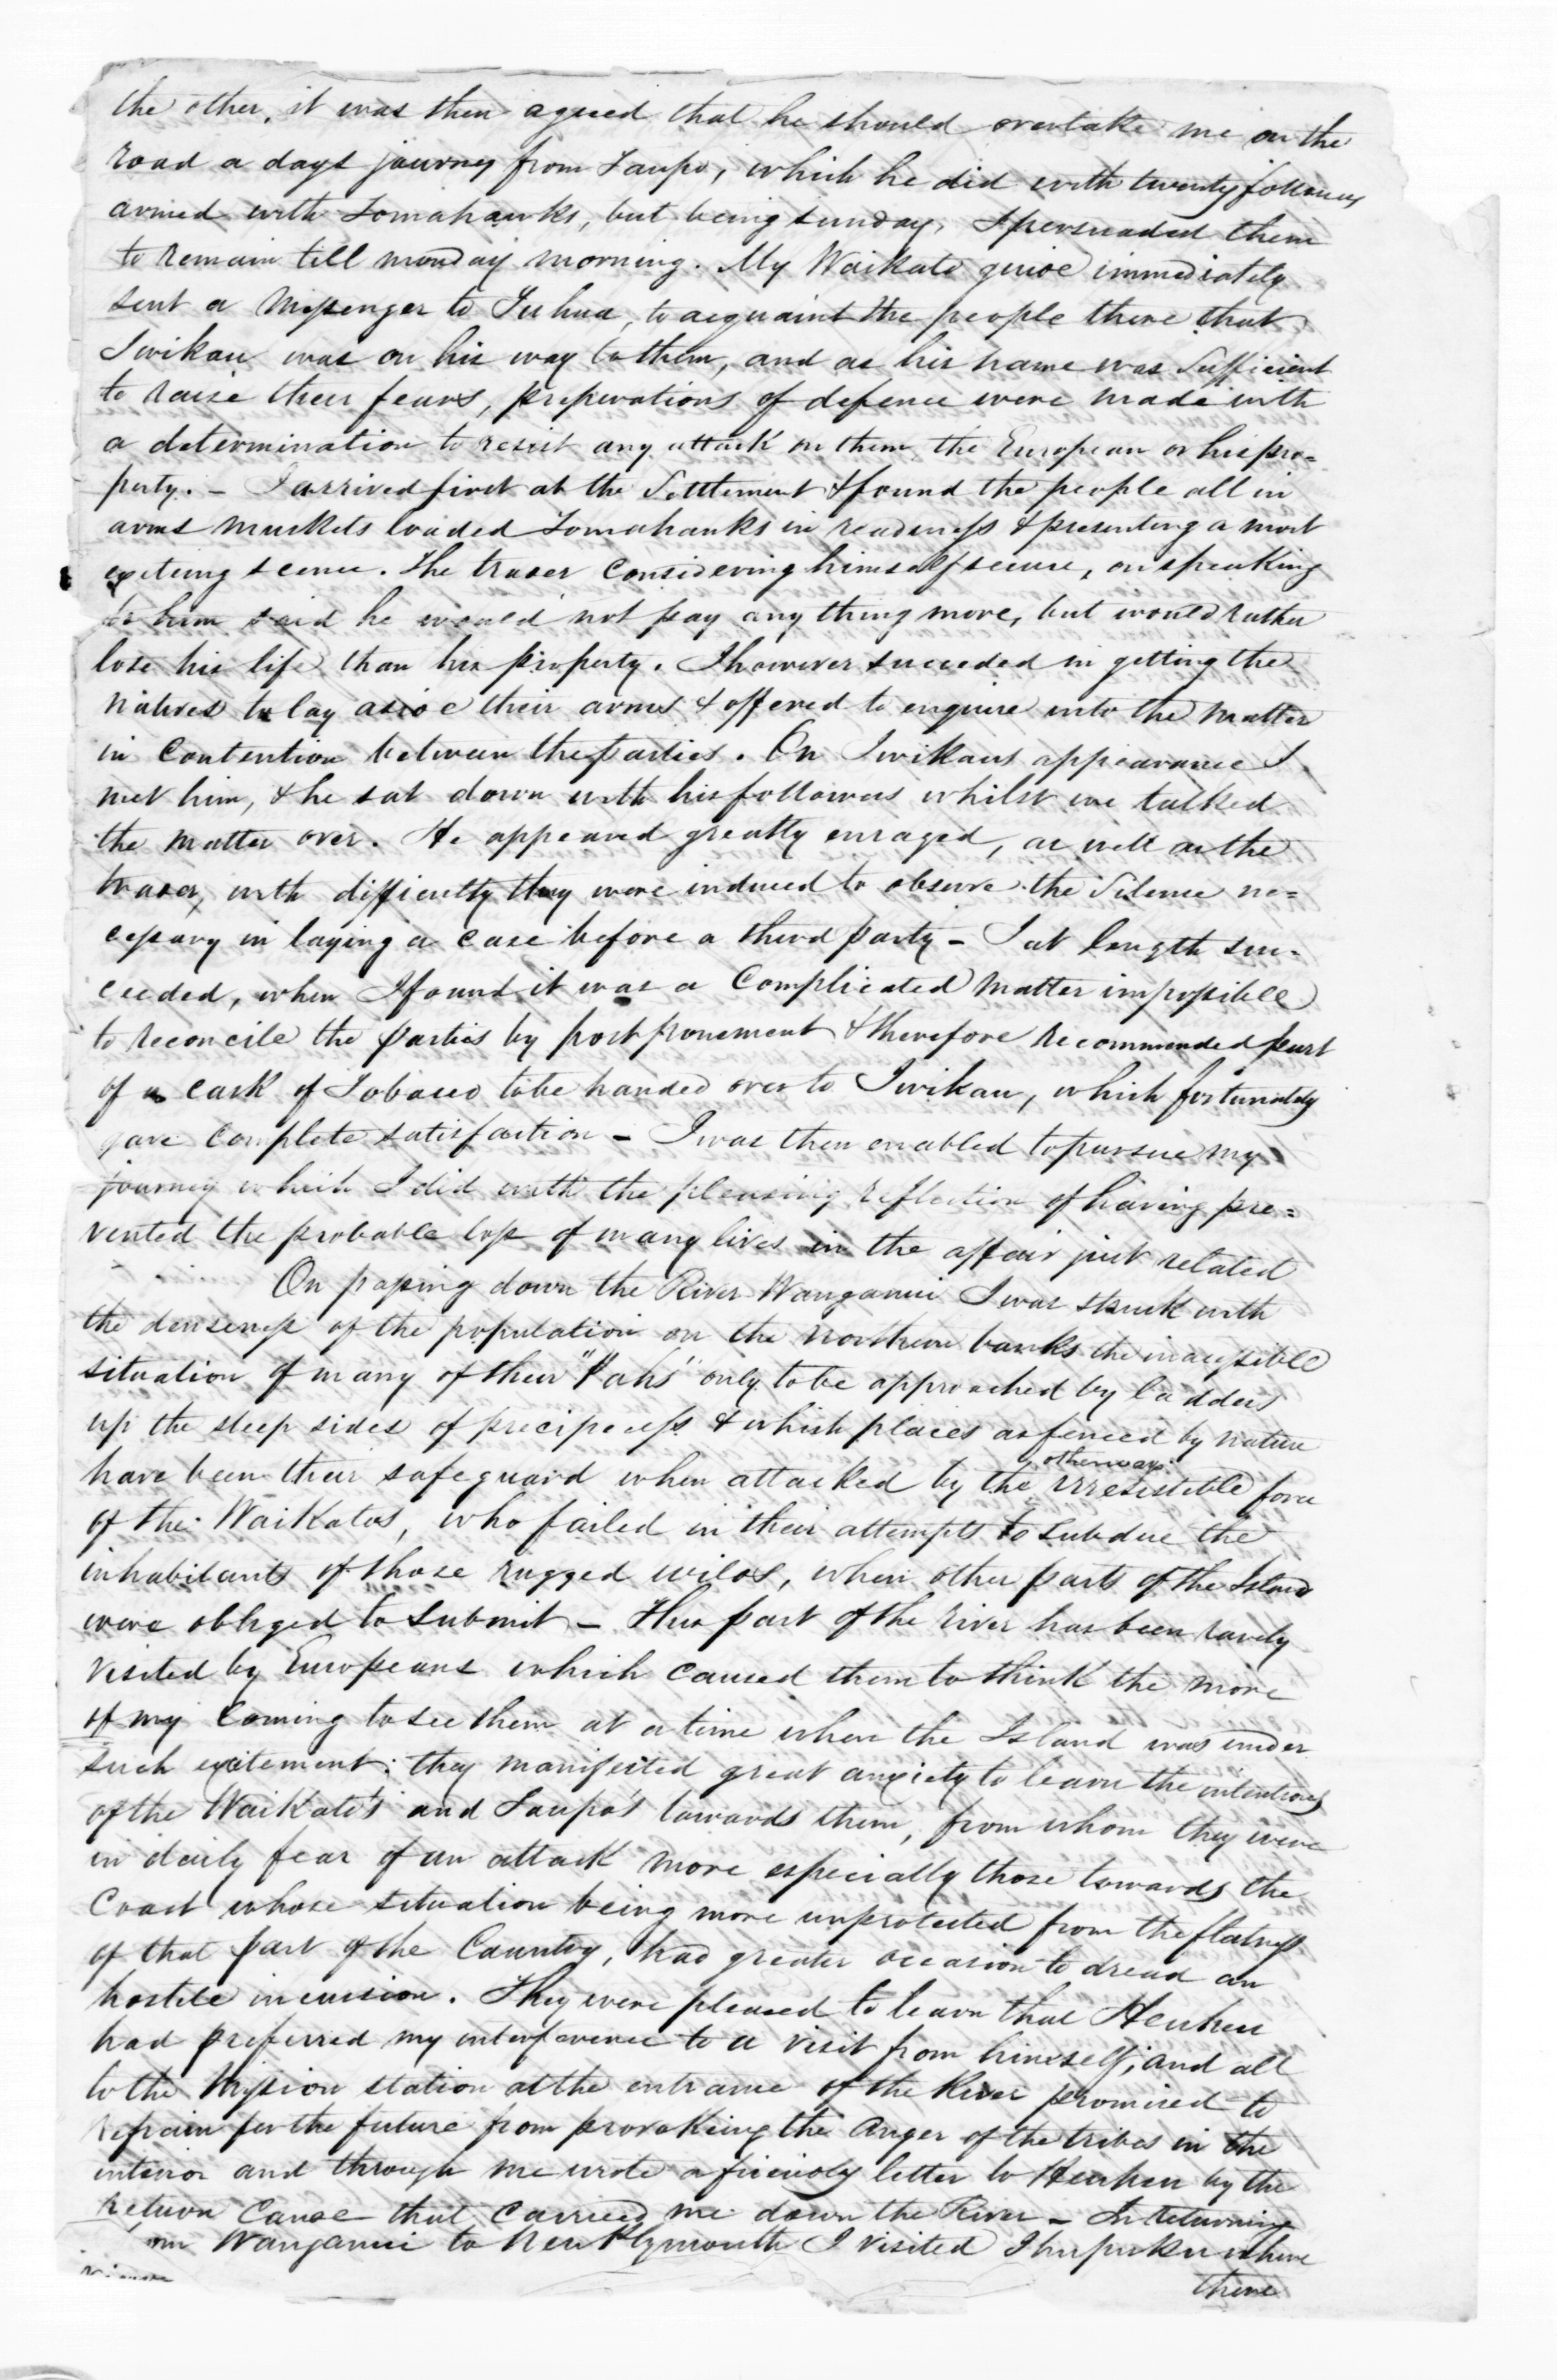 the other, it was then agreed that he should overtake me on the
road a days journey from Taupo, which he did with twenty followers
armed with Tomahawks, but being sunday, I persuaded them
to remain till monday morning. My Waikato guide immediately
sent a Messenger to Tuhua, to acquaint the people there that
Iwikau was on his way to them, and as his name was Sufficient
to raise their fears, preperations of defence were made with
a determination to resist any attack on them the European or his pro=
perty. - I arrived first at the Settlement & found the people all in
arms muskets loaded Tomahawks in readiness & presenting a most
exciting scene. The trader Considering himself secure, on speaking
to him said he would not pay any thing more, but would rather
lose his life than his property. I however succeeded in getting the
Natives to lay aside their arms & offered to enquire into the matter
in Contention between the parties. On Iwikaus appearance I
met him, & he sat down with his followers whilst we talked
the matter over. He appeared greatly enraged, as well as the
trader, with difficulty they were induced to observe the Silence ne=
cessary in laying a case before a third party - I at length suc=
ceeded, when I found it was a Complicated matter impossible
to reconcile the parties by postponement & therefore recommended part
of a cask of Tobacco to be handed over to Iwikau, which fortunately
gave Complete satisfaction - I was then enabled to pursue my
journey which I did with the pleasing reflection of having pre=
vented the probable loss of many lives in the affair just related
On passing down the River Wanganui I was struck with
the denseness of the population on the northern banks the inaccessible
situation of many of their "Pahs" only to be approached by ladders
up the steep sides of precipicess & which places as fenced by nature
have been their safeguard when attacked by the otherways irresistible force
of the Waikatos, who failed in their attempts to Subdue the
inhabitants of those rugged wilds, when other parts of the Island
were obliged to Submit - This part of the river has been rarely
visited by Europeans which caused them to think the more
of my Coming to see them at a time when the Island was under
such excitement: they manifested great anxiety to learn the intentions
of the Waikato's and Taupo's towards them, from whom they were
in daily fear of an attack more especially those towards the
Coast whose situation being more unprotected from the flatness
of that part of the Country, had greater occasion to dread an
hostile incursion. They were pleased to learn that Heuheu
had preferred my interference to a visit from himself; and all
to the Mission station at the entrance of the River promised to
refrain for the future from provoking the anger of the tribes in the
interior and through me wrote a friendly letter to Heuheu by the
return Canoe that Carried me down the River - In returning
from Wanganui to New Plymouth I visited Ihupuku where
there